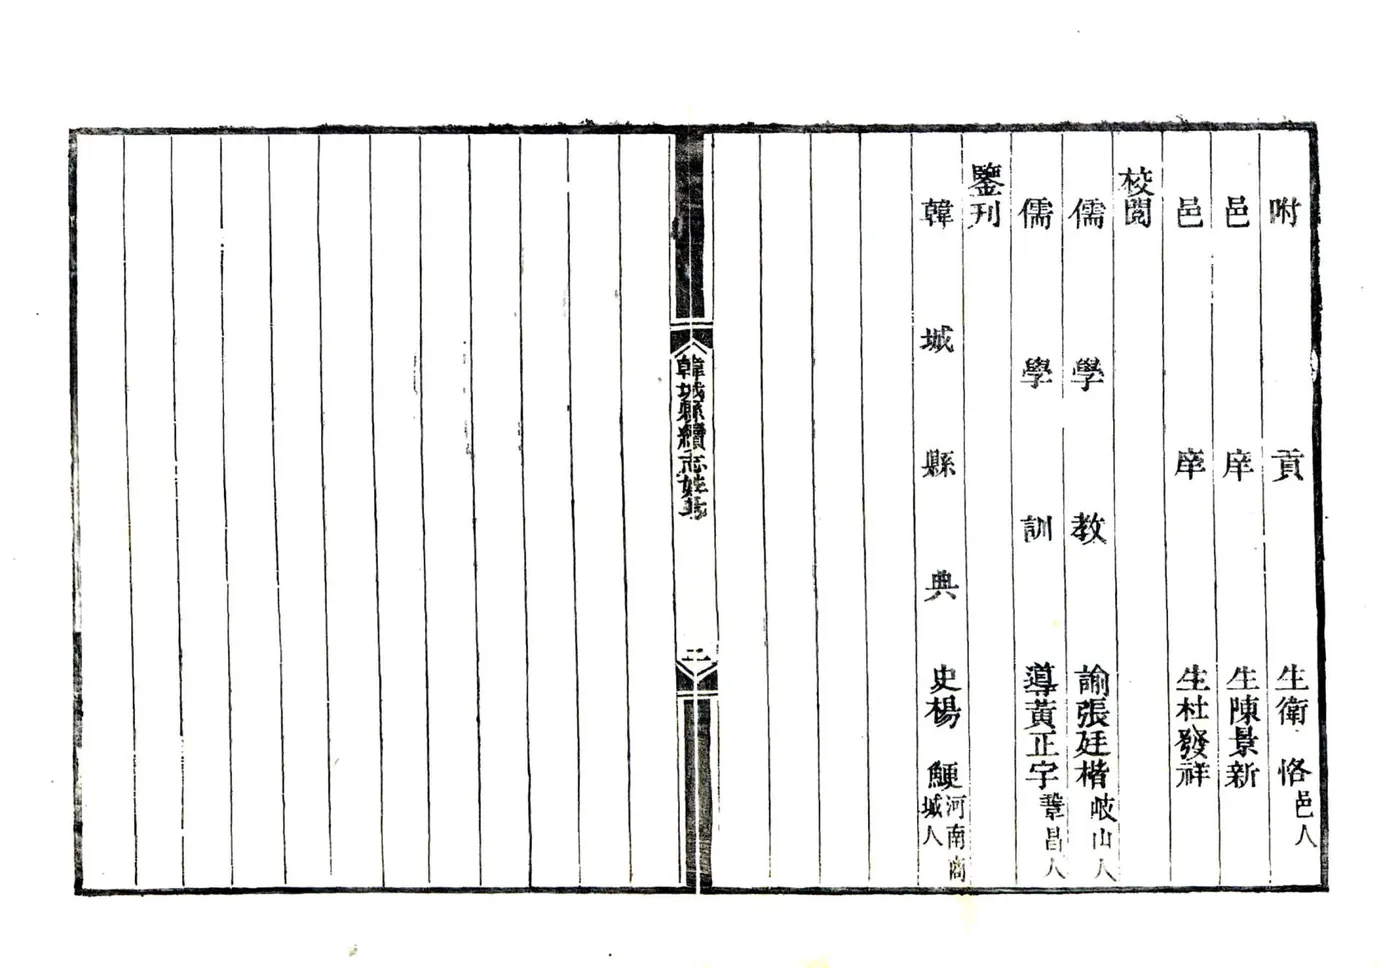 附貢生衛恪邑人
邑庠生陳景新
邑庠生杜發祥
校閱
儒學教諭張廷楷岐山人
儒學訓導黃正字鞏昌人
鑒刊
韓城縣典史楊鯁河南商城人
韓城縣續志姓氏
二